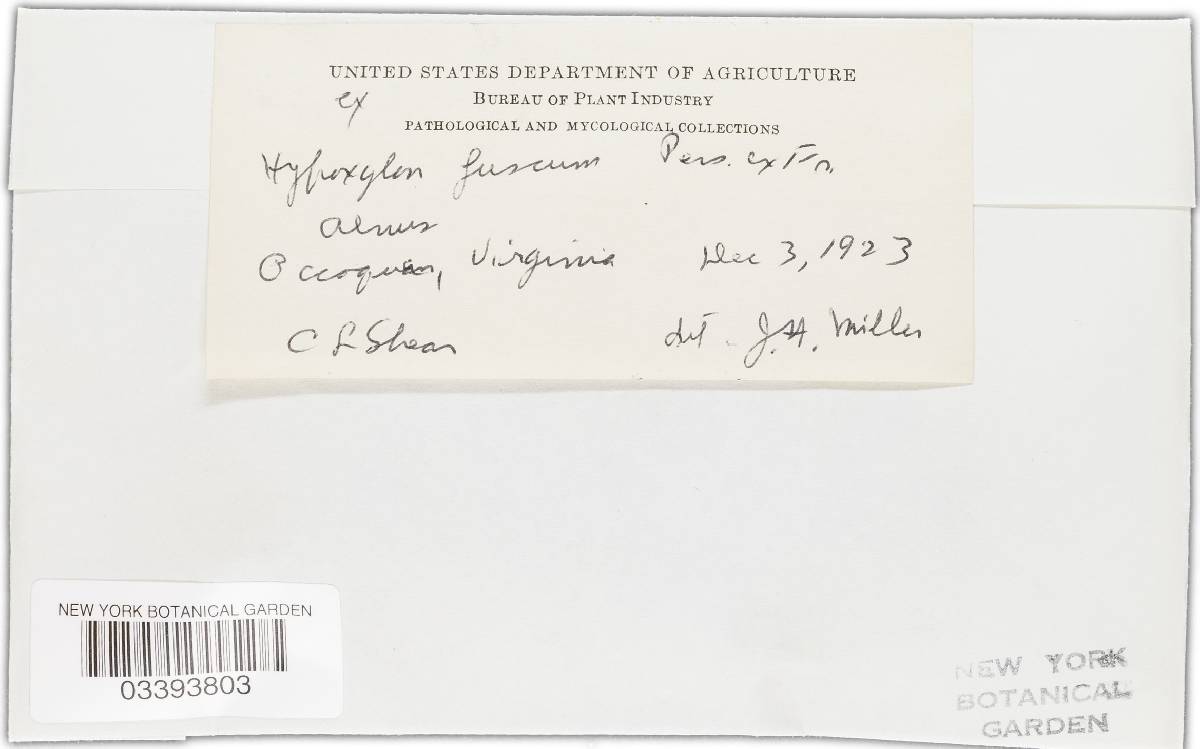 UNITED STATES DEPARTMENT OF AGRICULTURE
ex BUREAU OF PLANT INDUSTRY
PATHOLOGICAL AND MYCOLOGICAL COLLECTIONS
Hypoxylon fuscum Pers. ex Fr.
Alnus
Occoquan, Virginia Dec 3, 1923
C L Shear det. J.H. Miller
NEW YORK BOTANICAL GARDEN
03393803
NEW YORK
BOTANICAL
GARDEN